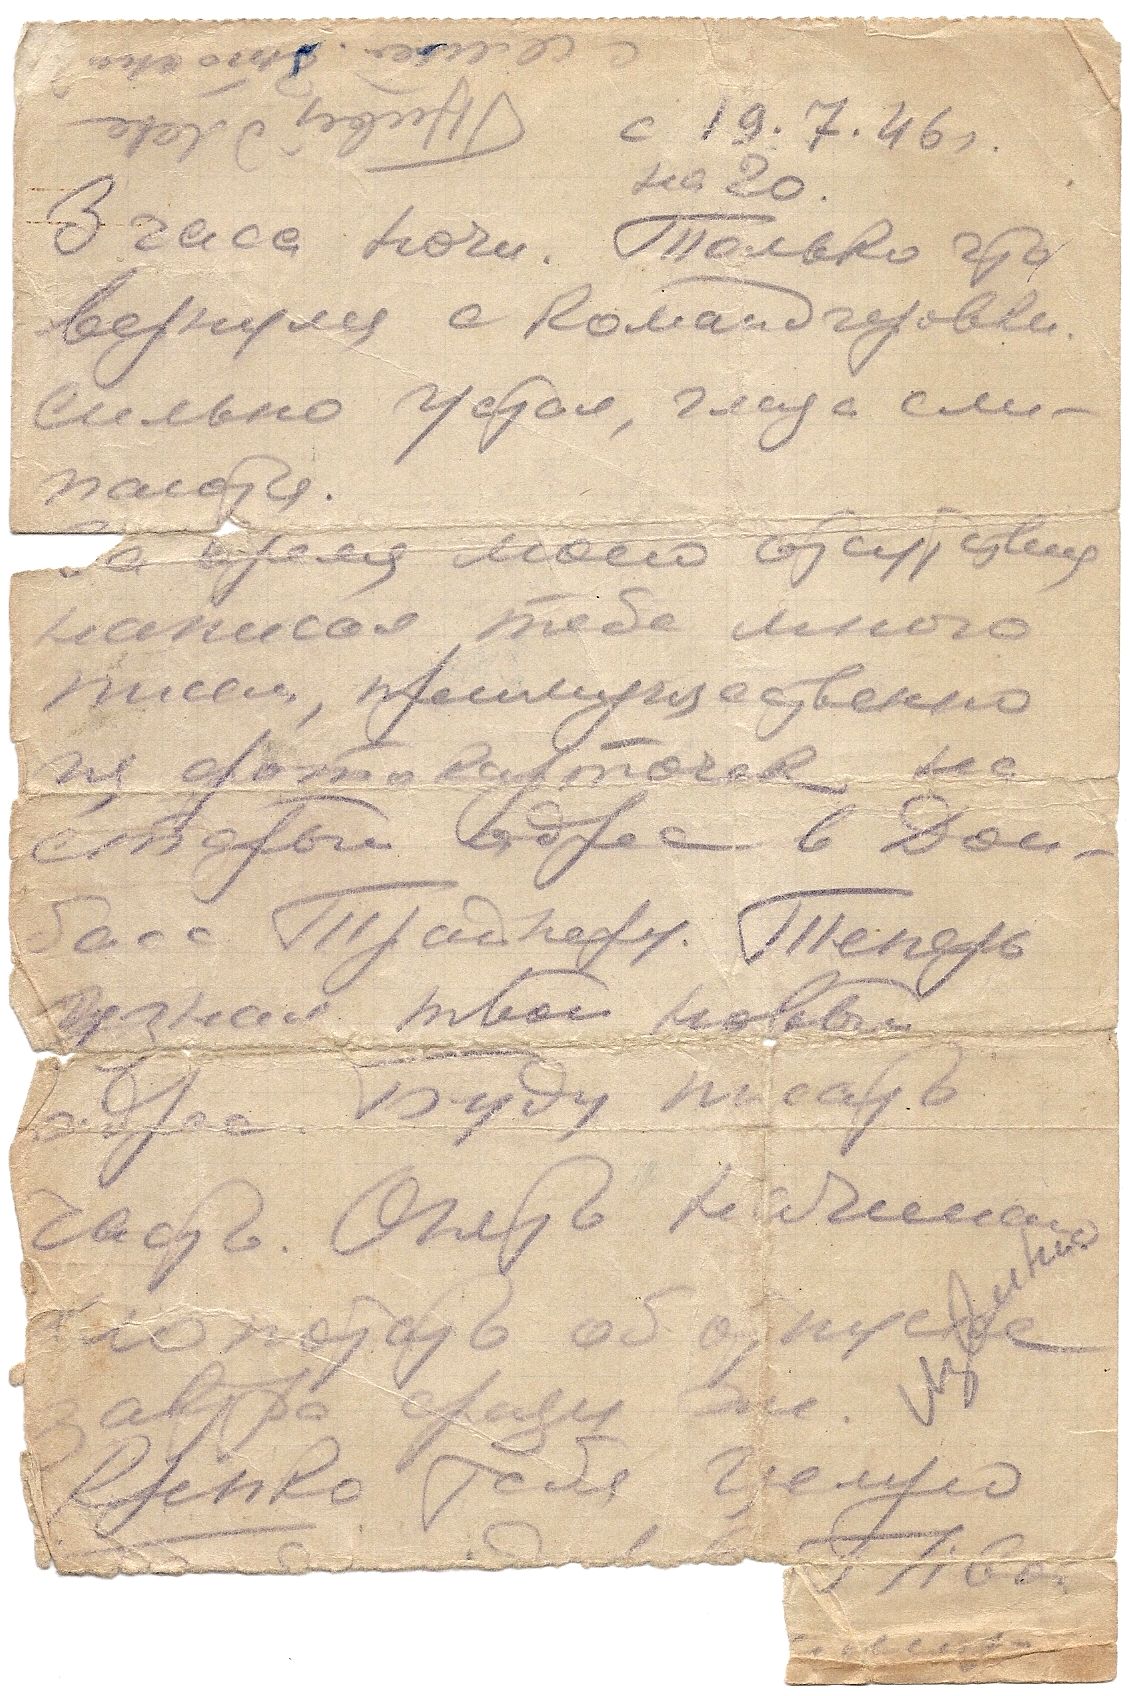 с 19.7.46 г.
на 20.
3 часа ночи. Только что
вернулся с командировки.
Сильно устал, глаза сли-
паются.
За время моего отсутствия
написал тебе много
писем, преимущественно
из фотокарточек на
старый адрес в Дон-
басс Трайнеру. Теперь
узнал твой новый
адрес. Буду писать
часто. Опять начинаю
хлопотать об отпуске
завтра сразу же.
Крепко тебя целую
Твой
Привет Элке
с